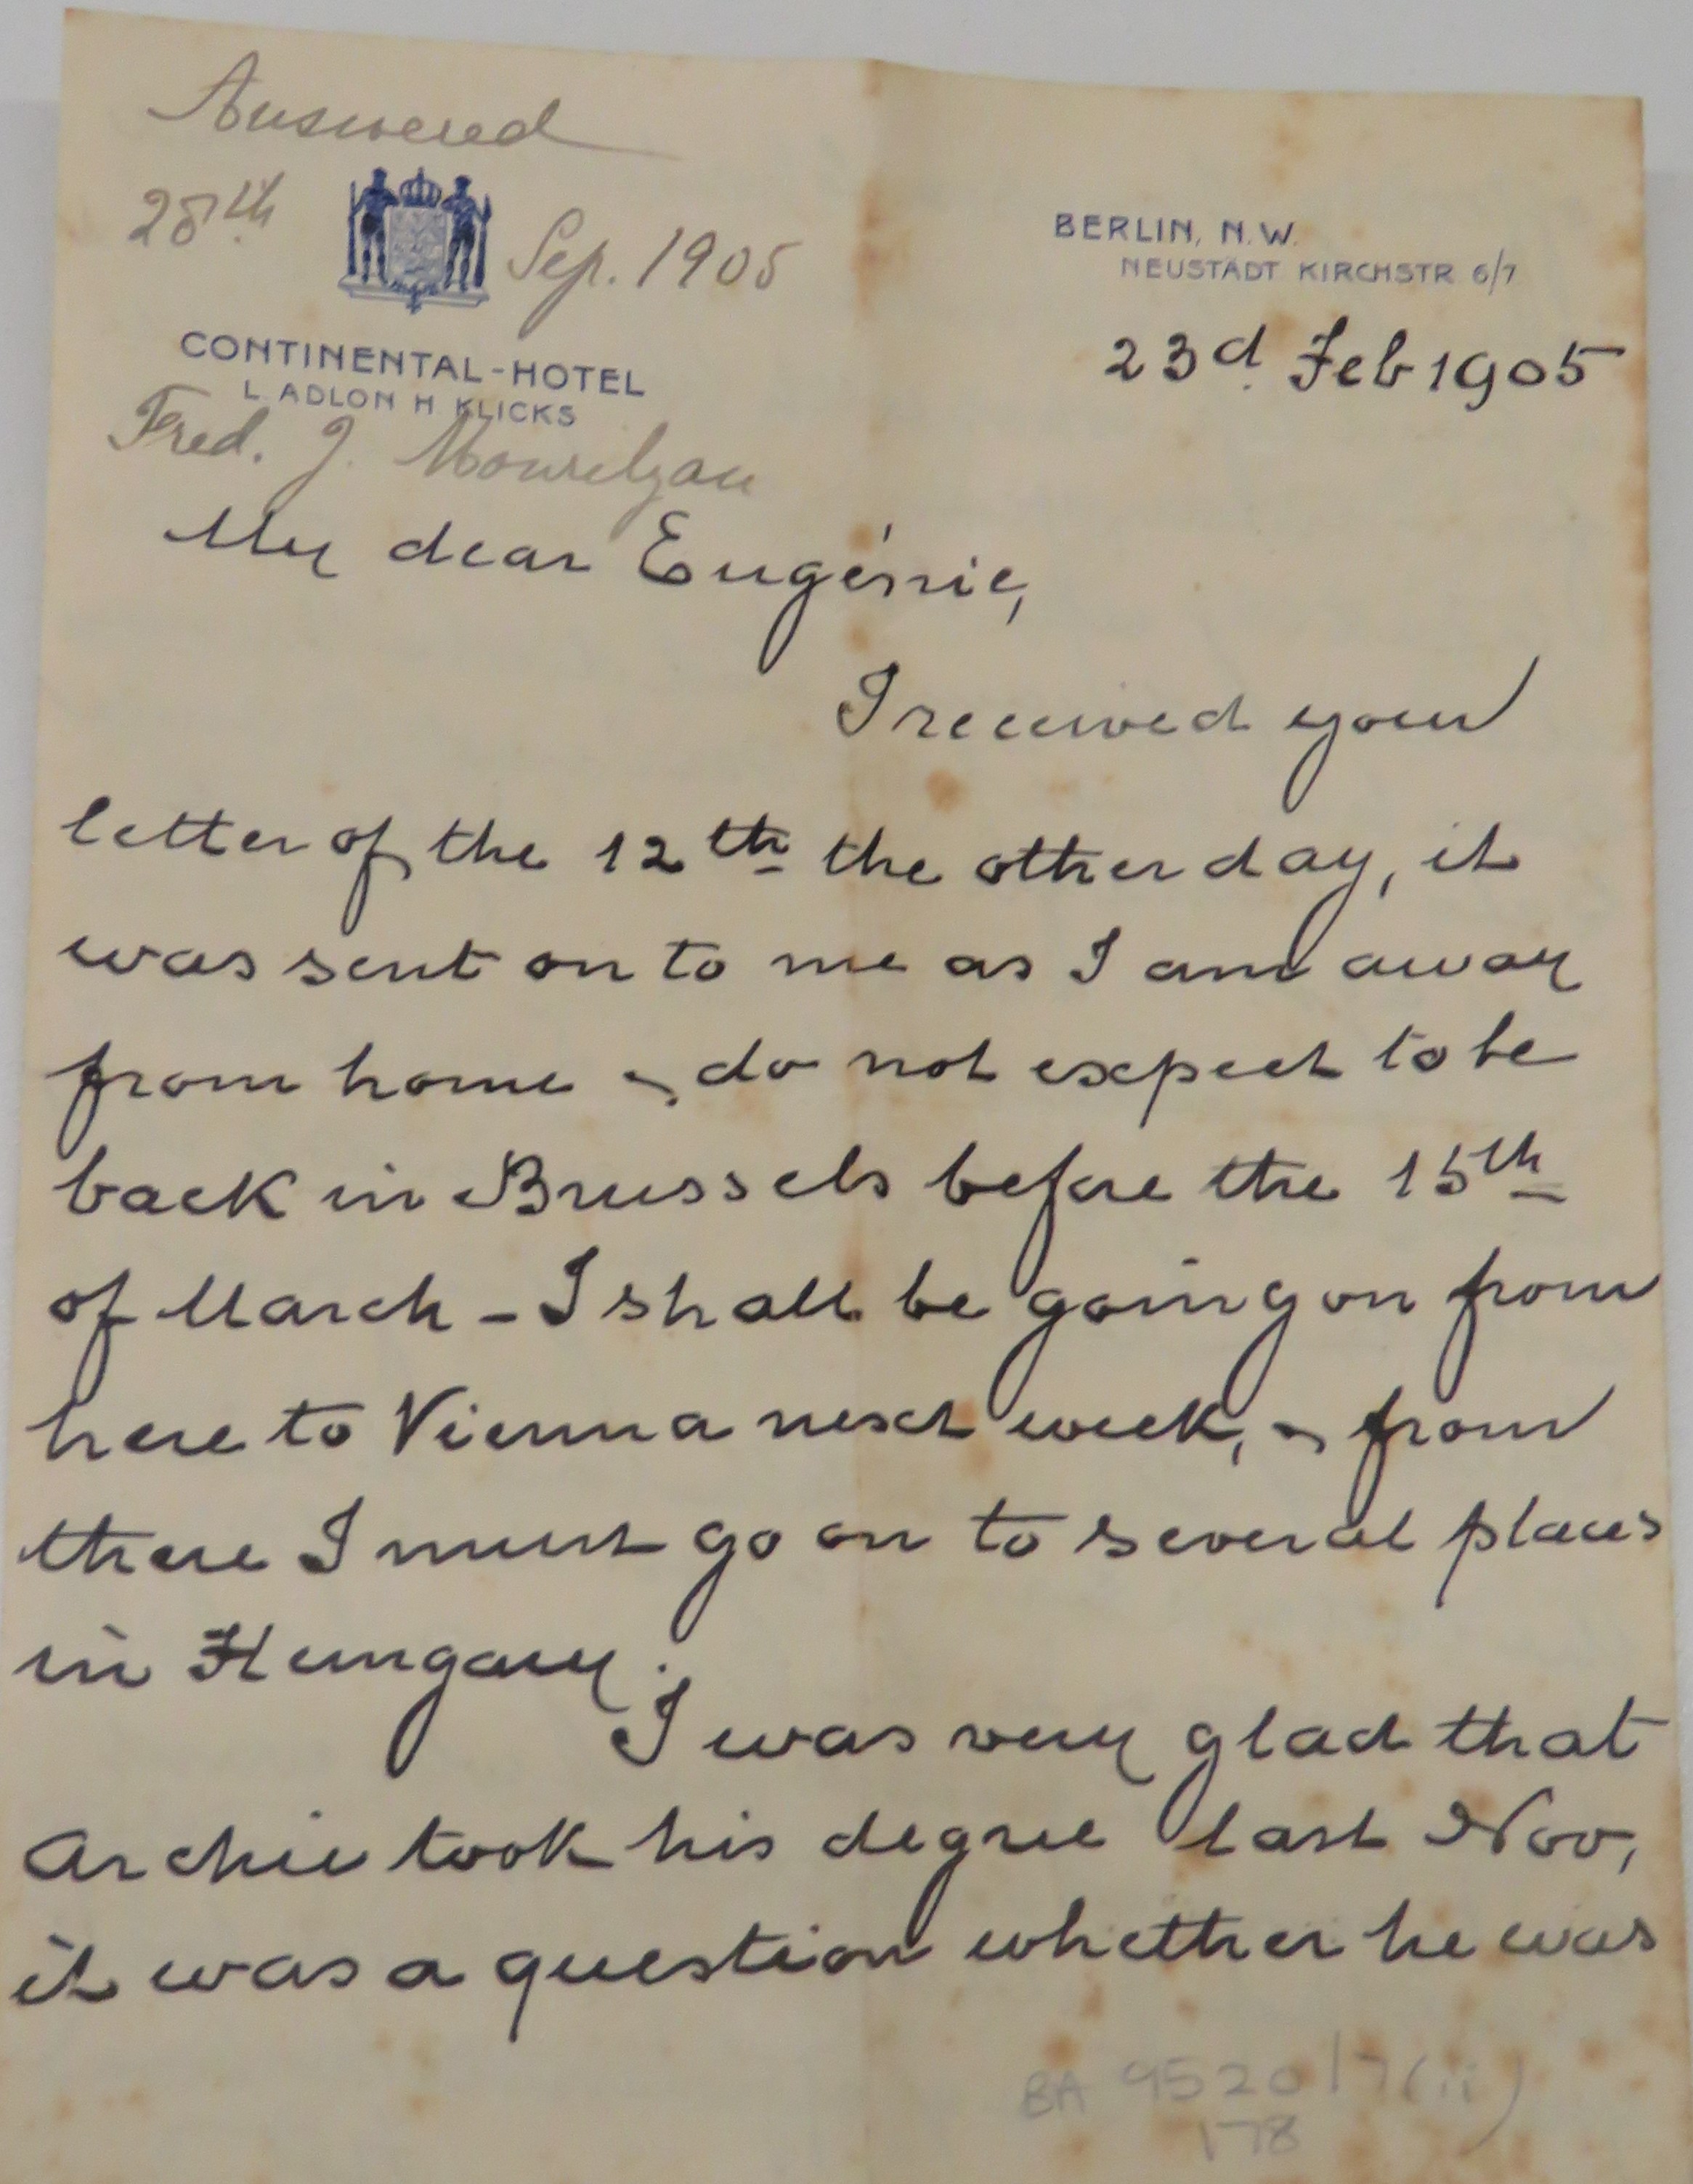 Answered
28th Sep. 1905
CONTINENTAL-HOTEL
L ADLON H KLICKS
Fred. J.
BERLIN, N.W.
NEUSTÄDT KIRCHSTR 6/7
23d Feb 1905
My dear Eugénie,
I received your
letter of the 12th the other day, it
was sent on to me as I am away
from home & do not expect to be
back in Brussels before the 15th
of March - I shall be going on from
here to Vienna next week, & from
there I must go on to several places
in Hungary.
I was very glad that
Archie took his degree last Nov,
it was a question whether he was
BA 9520/7(ii)
178